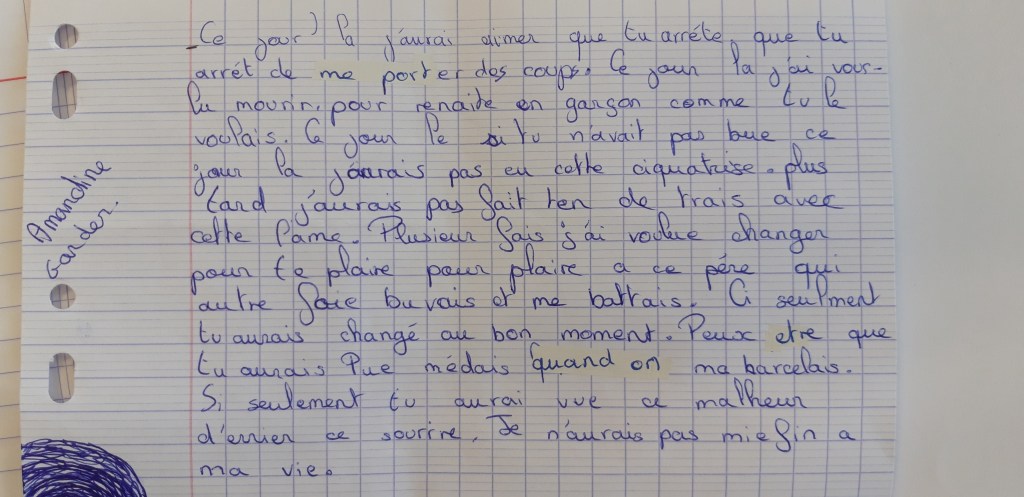 Ce jour là j'aurai aimer que tu arréte, que tu
arrét de me porter des coups. Ce jour la j'ai vour-
lu mourir, pour renaitre en garson comme tu le
voulais. Ce jour le si tu n'avait pas bue ce
jour la j'aurais pas eu cette ciquatrise. plus
tard j'aurais pas fait ten de trais avec
cette lame. Plusieur fois j'ai voulue changer
pour te plaire pour plaire a ce pére qui
autre foie buvais et me battais. Ci seulment
tu aurais changé au bon moment. Peux etre que
tu aurais Pue médais quand on ma barcelais.
Si seulement tu aurai vue ce malheur
d'errier ce sourire. Je n'aurais pas mie fin a
ma vie.
Amandine
Garder.